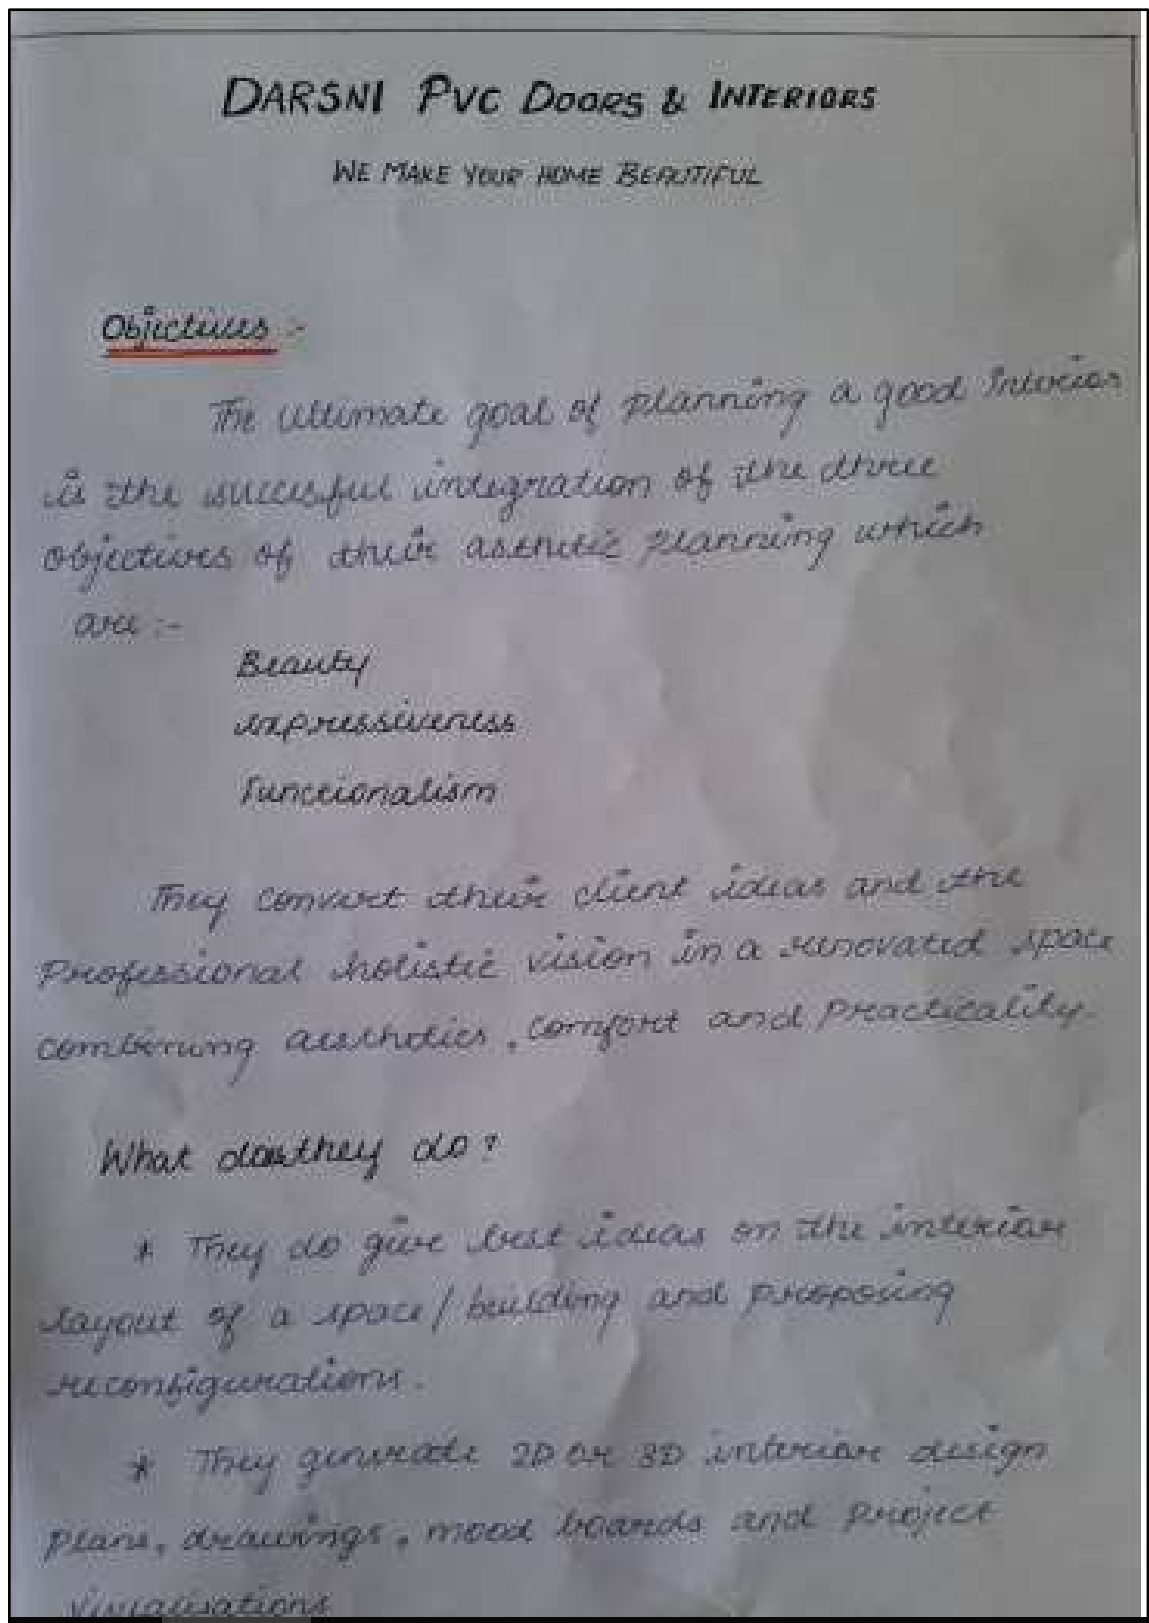 DARSNI PVC DOORS & INTERIORS
WE MAKE YOUR HOME BEAUTIFUL
Objectives :-
The ultimate goal of planning a good Interior
is the succesful integration of the three
objectives of their asthetic planning which
are :-
Beauty
expressiveness
Functionalism
They convert their client ideas and the
Professional holistic vision in a renovated space
combining aesthetics, comfort and practicality.
What does they do?
* They do give best ideas on the interior
layout of a space/building and proposing
reconfigurations.
* They generate 2D or 3D interior design
plans, drawings, mood boards and project
visualisations